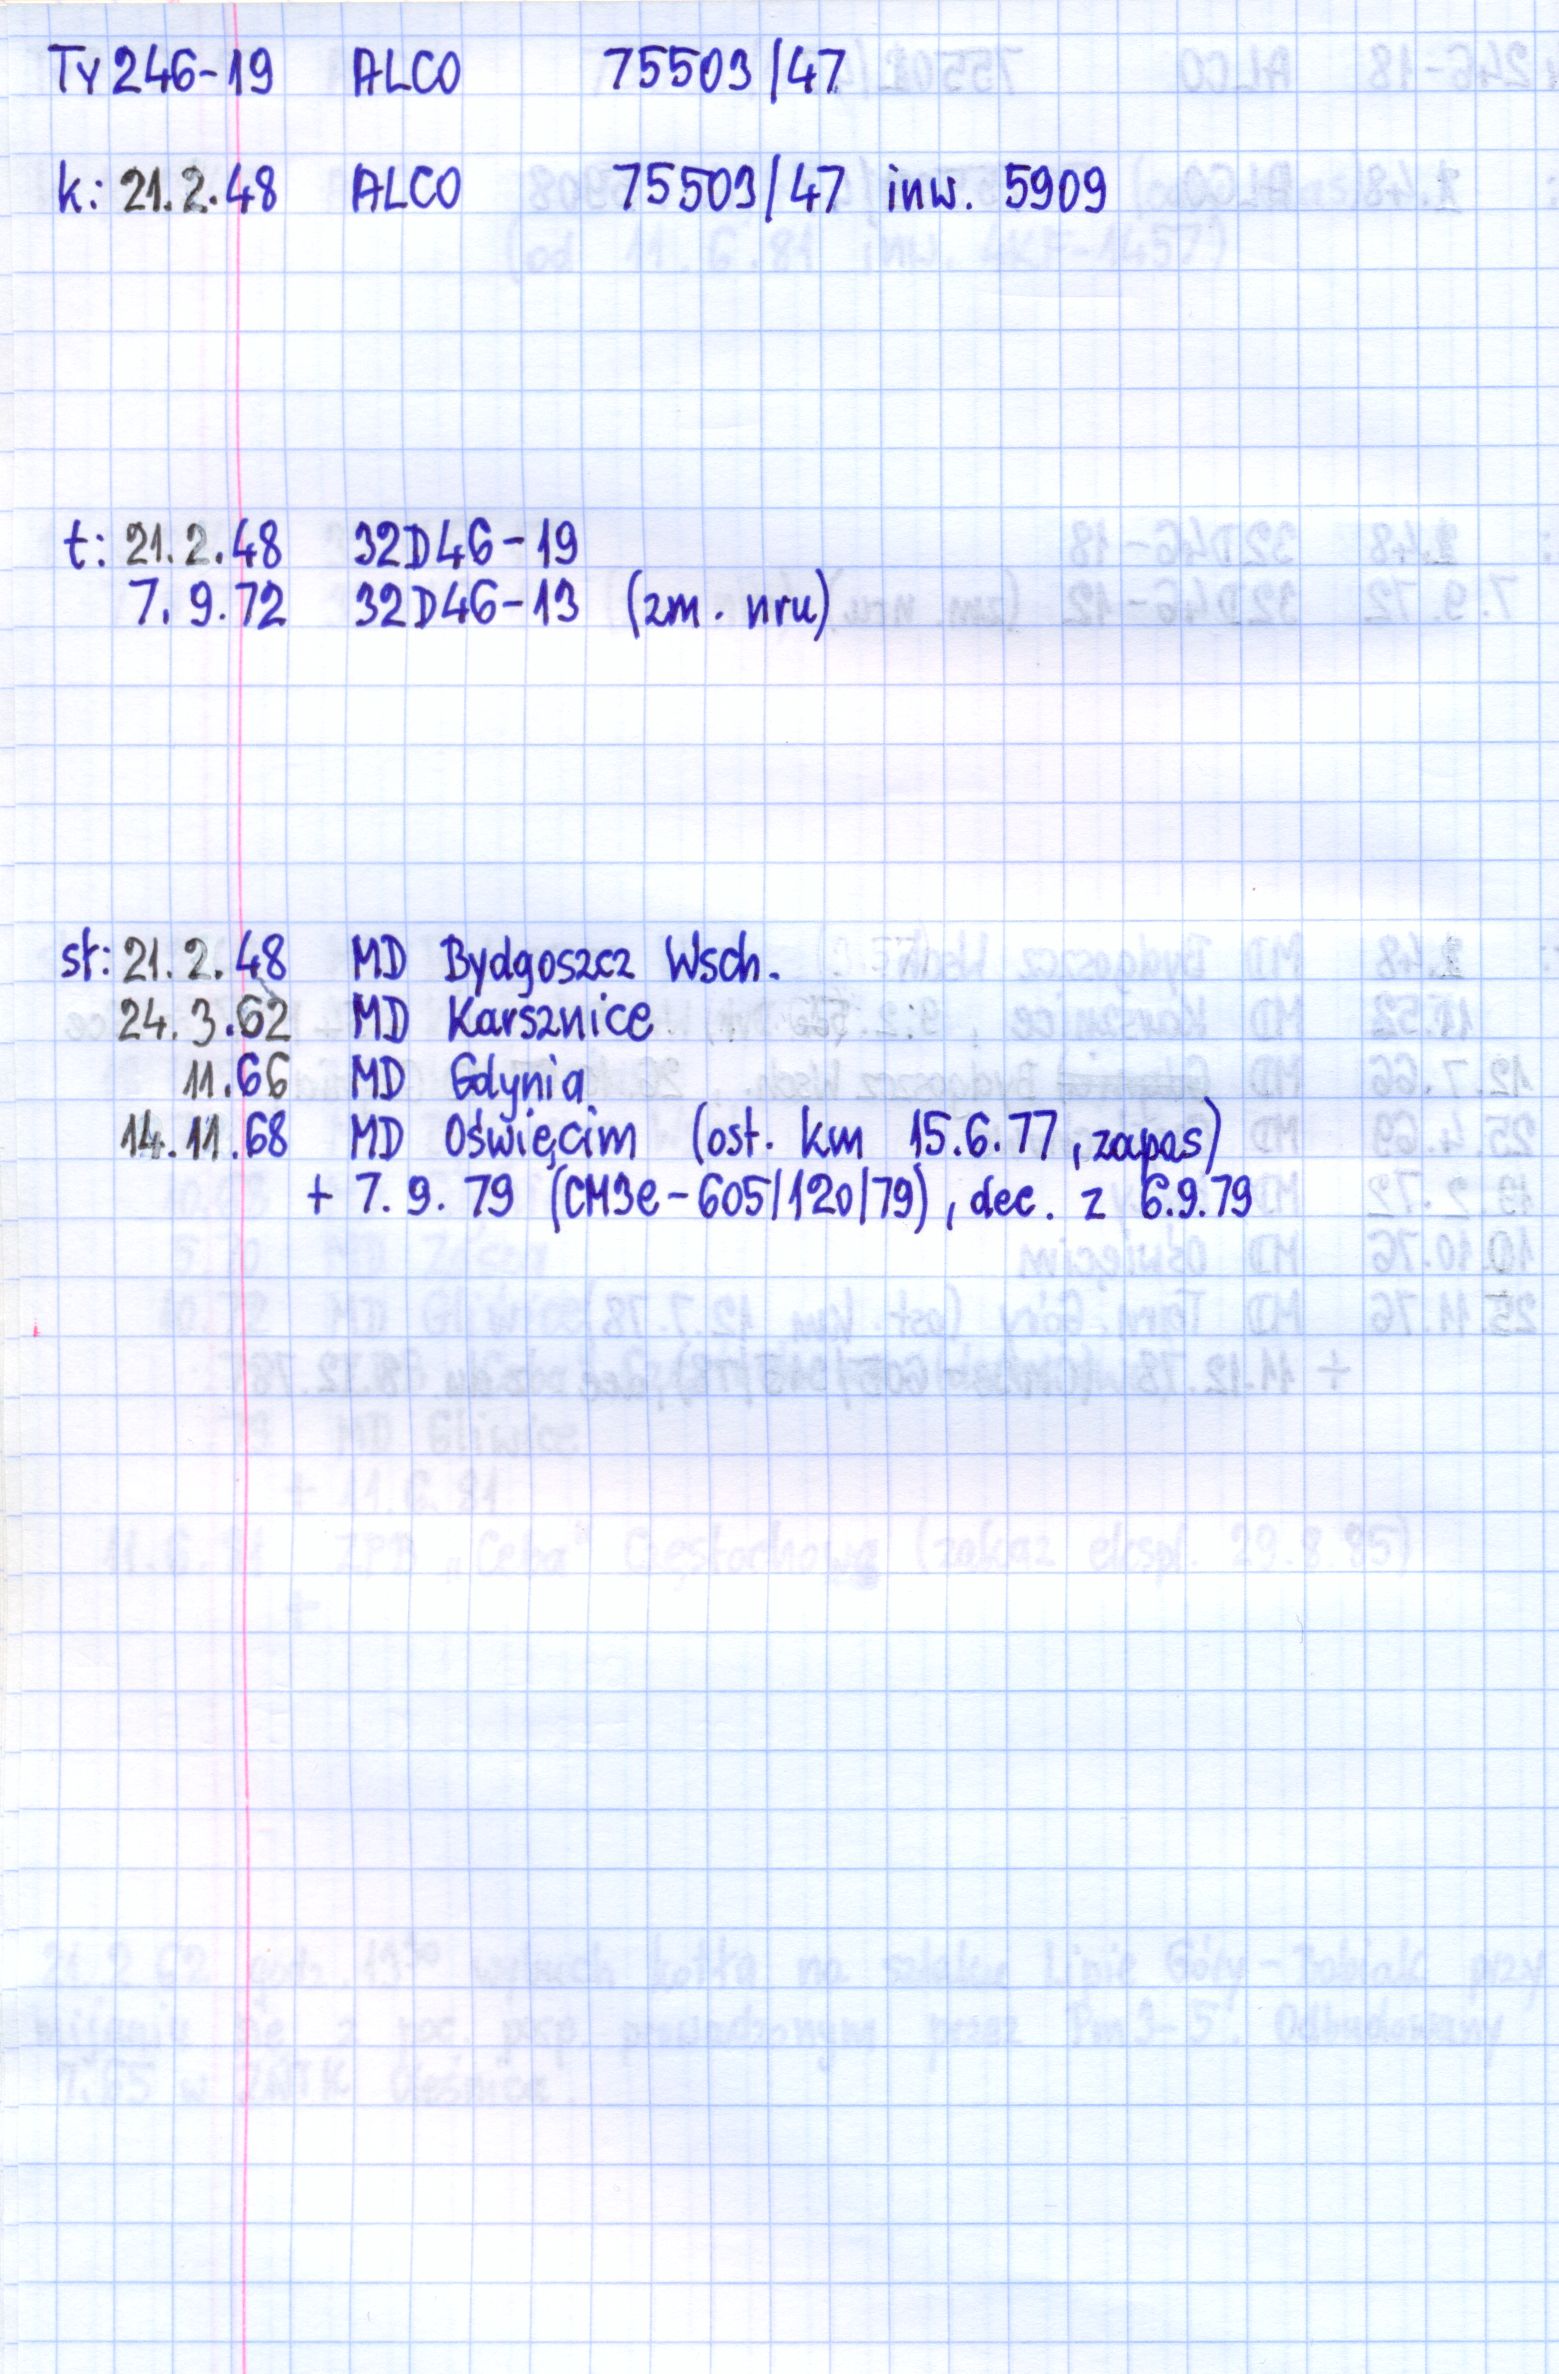 Ty246-19 ALCO 75503/47
k: 21.2.48 ALCO 75503/47 inw. 5909
t: 21.2.48 32D46-19
7.9.72 32D46-13 (zm. nru)
st: 21.2.48 MD Bydgoszcz Wsch.
24.3.62 MD Karsznice
11.66 MD Gdynia
14.11.68 MD Oświęcim (ost. km 15.6.77, zapas)
+ 7.9.79 (CM3e-605/120/79), dec. z 6.9.79